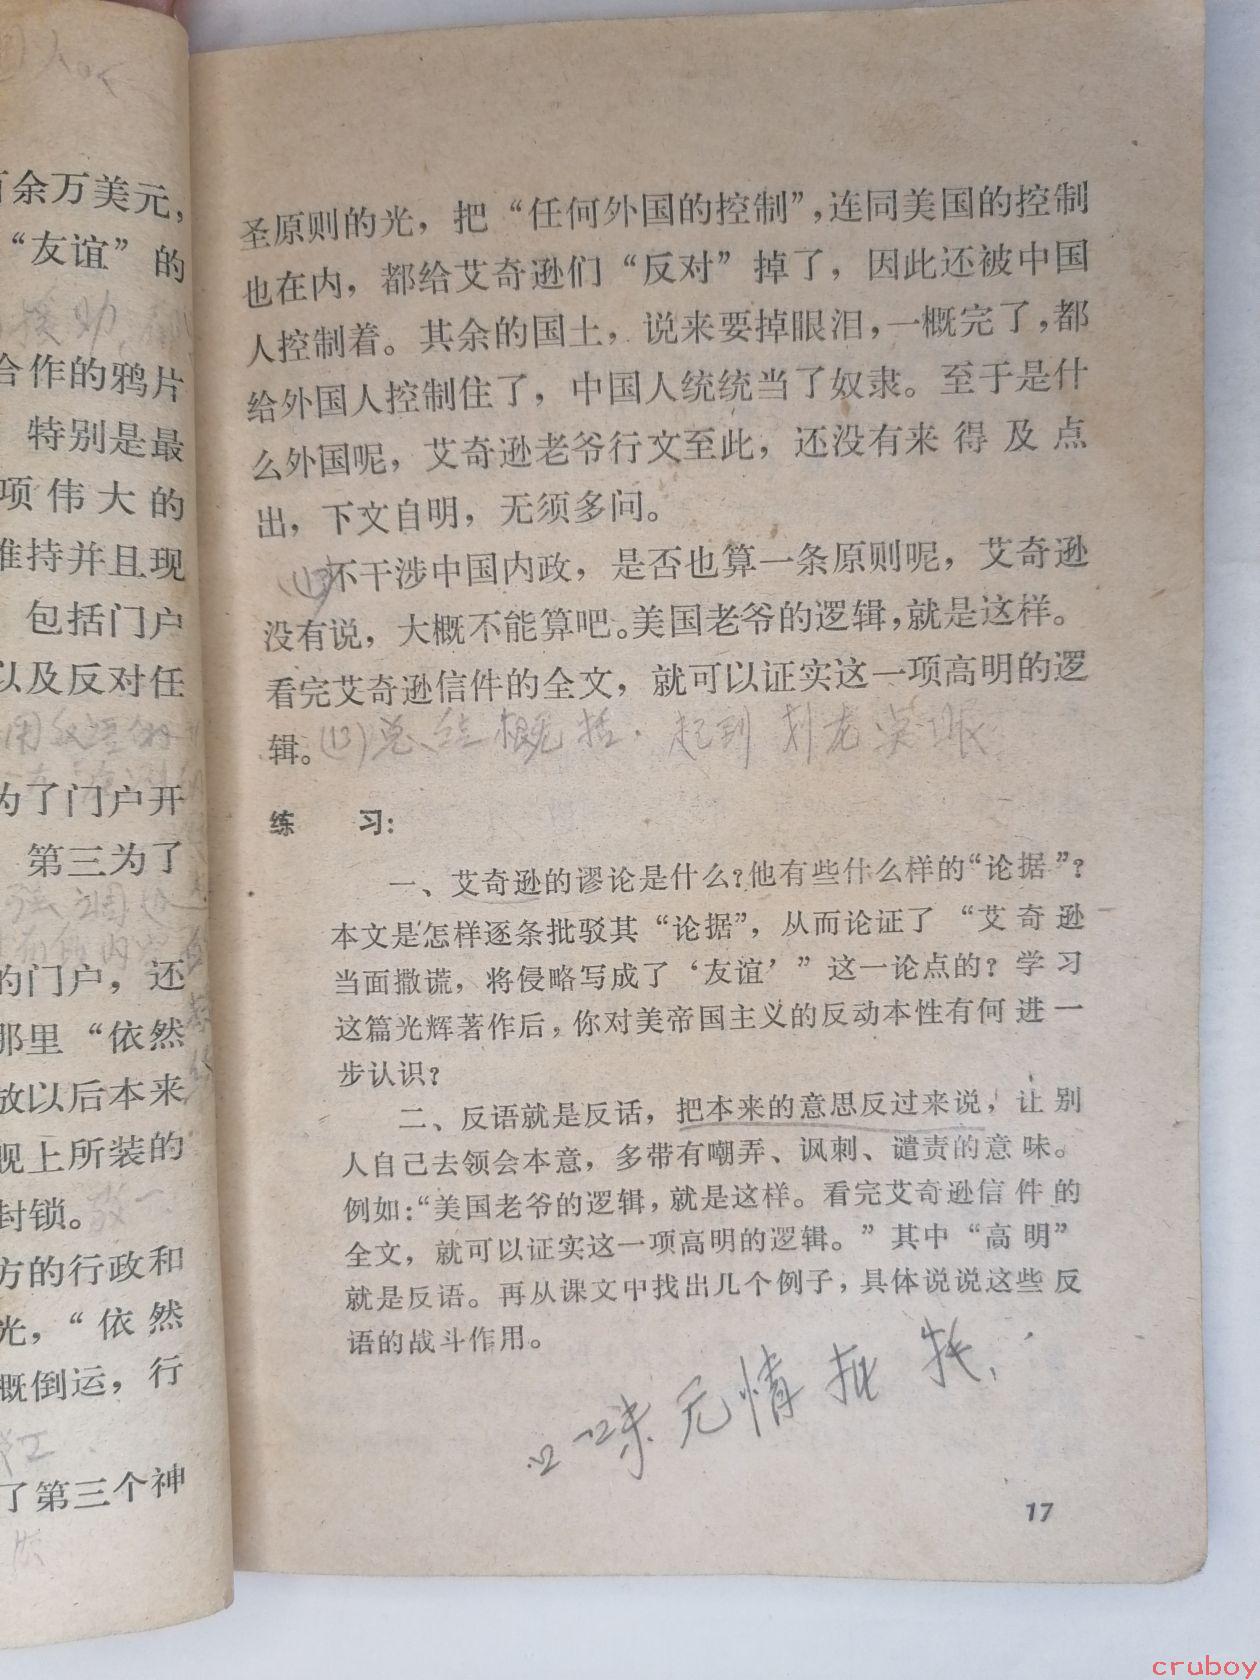 百余万美元，
“友谊”的
援助
合作的鸦片
特别是最
项伟大的
维持并且现
包括门户
以及反对任
为了门户开
第三为了
强调
的门户，还
那里“依然
放以后本来
舰上所装的
封锁。
方的行政和
光，“依然
概倒运，行
了第三个神
圣原则的光，把“任何外国的控制”，连同美国的控制
也在内，都给艾奇逊们“反对”掉了，因此还被中国
人控制着。其余的国土，说来要掉眼泪，一概完了，都
给外国人控制住了，中国人统统当了奴隶。至于是什
么外国呢，艾奇逊老爷行文至此，还没有来得及点
出，下文自明，无须多问。
不干涉中国内政，是否也算一条原则呢，艾奇逊
没有说，大概不能算吧。美国老爷的逻辑，就是这样。
看完艾奇逊信件的全文，就可以证实这一项高明的逻
辑。(13)总结概括，起到
练 习：
一、艾奇逊的谬论是什么？他有些什么样的“论据”？
本文是怎样逐条批驳其“论据”，从而论证了“艾奇逊
当面撒谎，将侵略写成了‘友谊’”这一论点的？学习
这篇光辉著作后，你对美帝国主义的反动本性有何进一
步认识？
二、反语就是反话，把本来的意思反过来说，让别
人自己去领会本意，多带有嘲弄、讽刺、谴责的意味。
例如：“美国老爷的逻辑，就是这样。看完艾奇逊信件的
全文，就可以证实这一项高明的逻辑。”其中“高明”
就是反语。再从课文中找出几个例子，具体说说这些反
语的战斗作用。
味无情批
17
cruboy